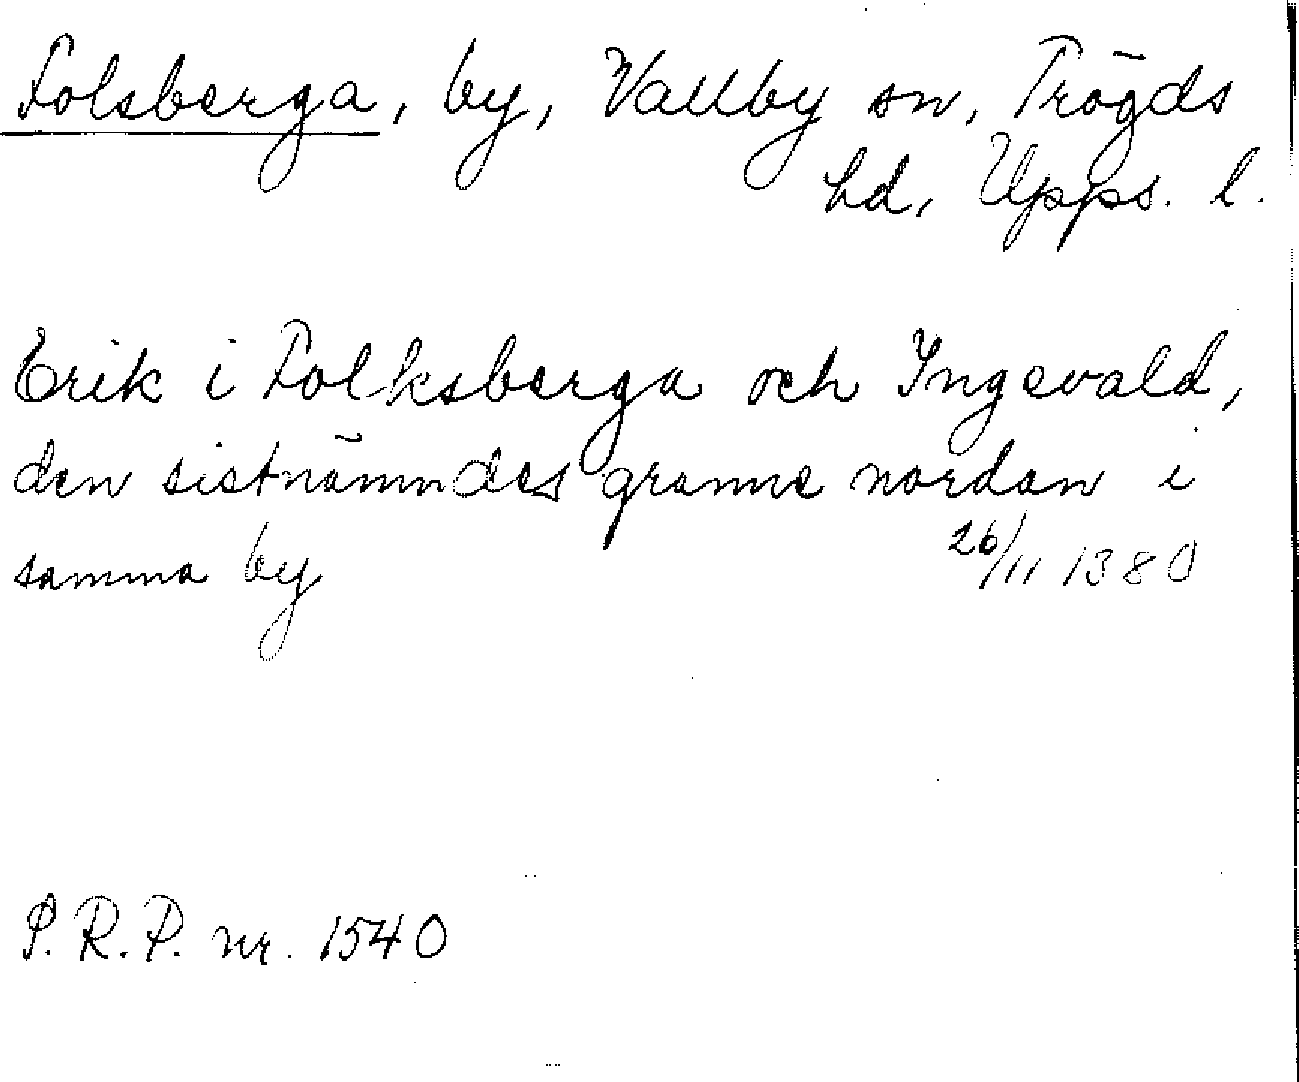 Folsberga, by, Vallby sn, Trögds
hd, Upps. l.
Erik i Folksberga och Ingevald,
den sistnämndes granne nordan i
samma by 26/11 1380
P.R.P. nr. 1540